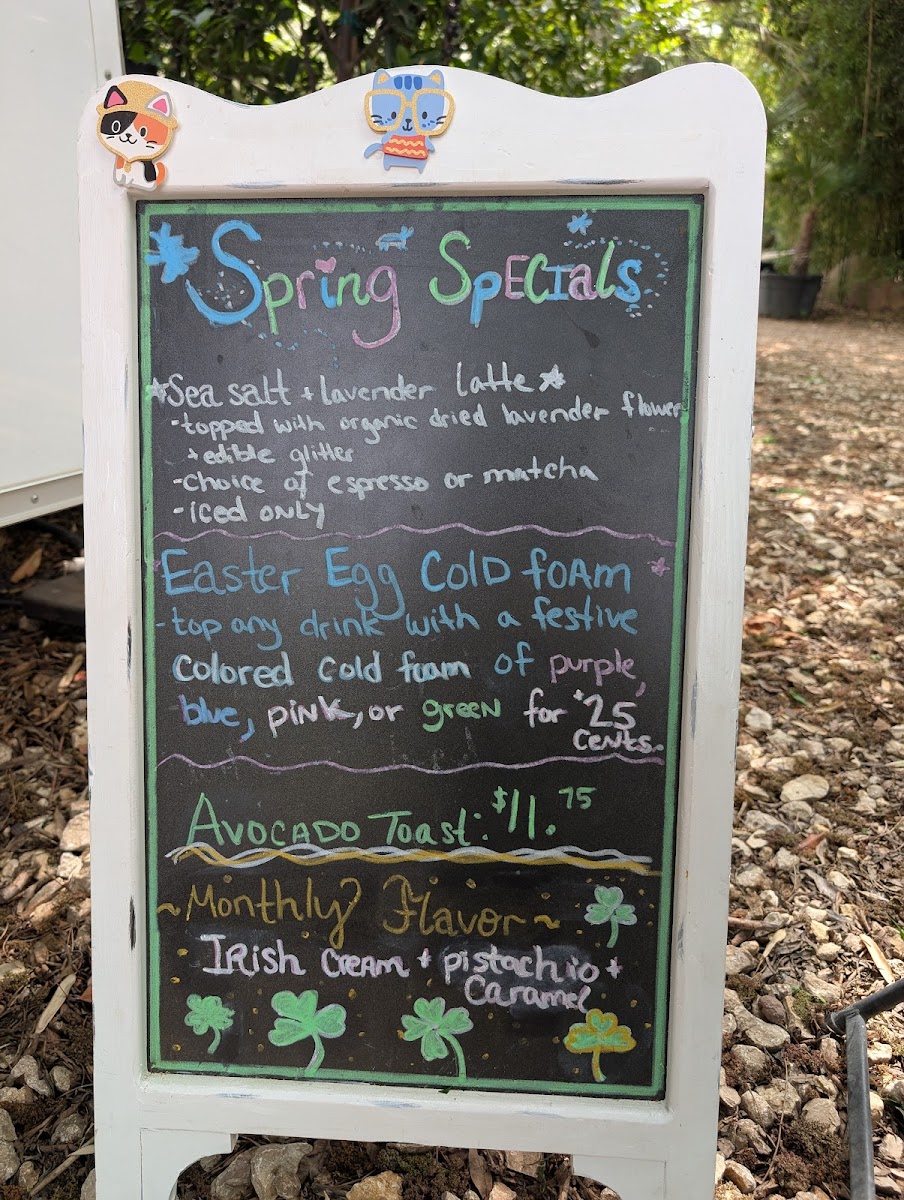 Spring Specials
Sea salt + lavender latte
- topped with organic dried lavender flower
+ edible glitter
- choice of espresso or matcha
- iced only
Easter Egg Cold foam
- top any drink with a festive
colored cold foam of purple,
blue, pink, or green for $25
cents.
Avocado Toast: $11.75
~Monthly Flavor~
Irish cream + pistachio +
Caramel